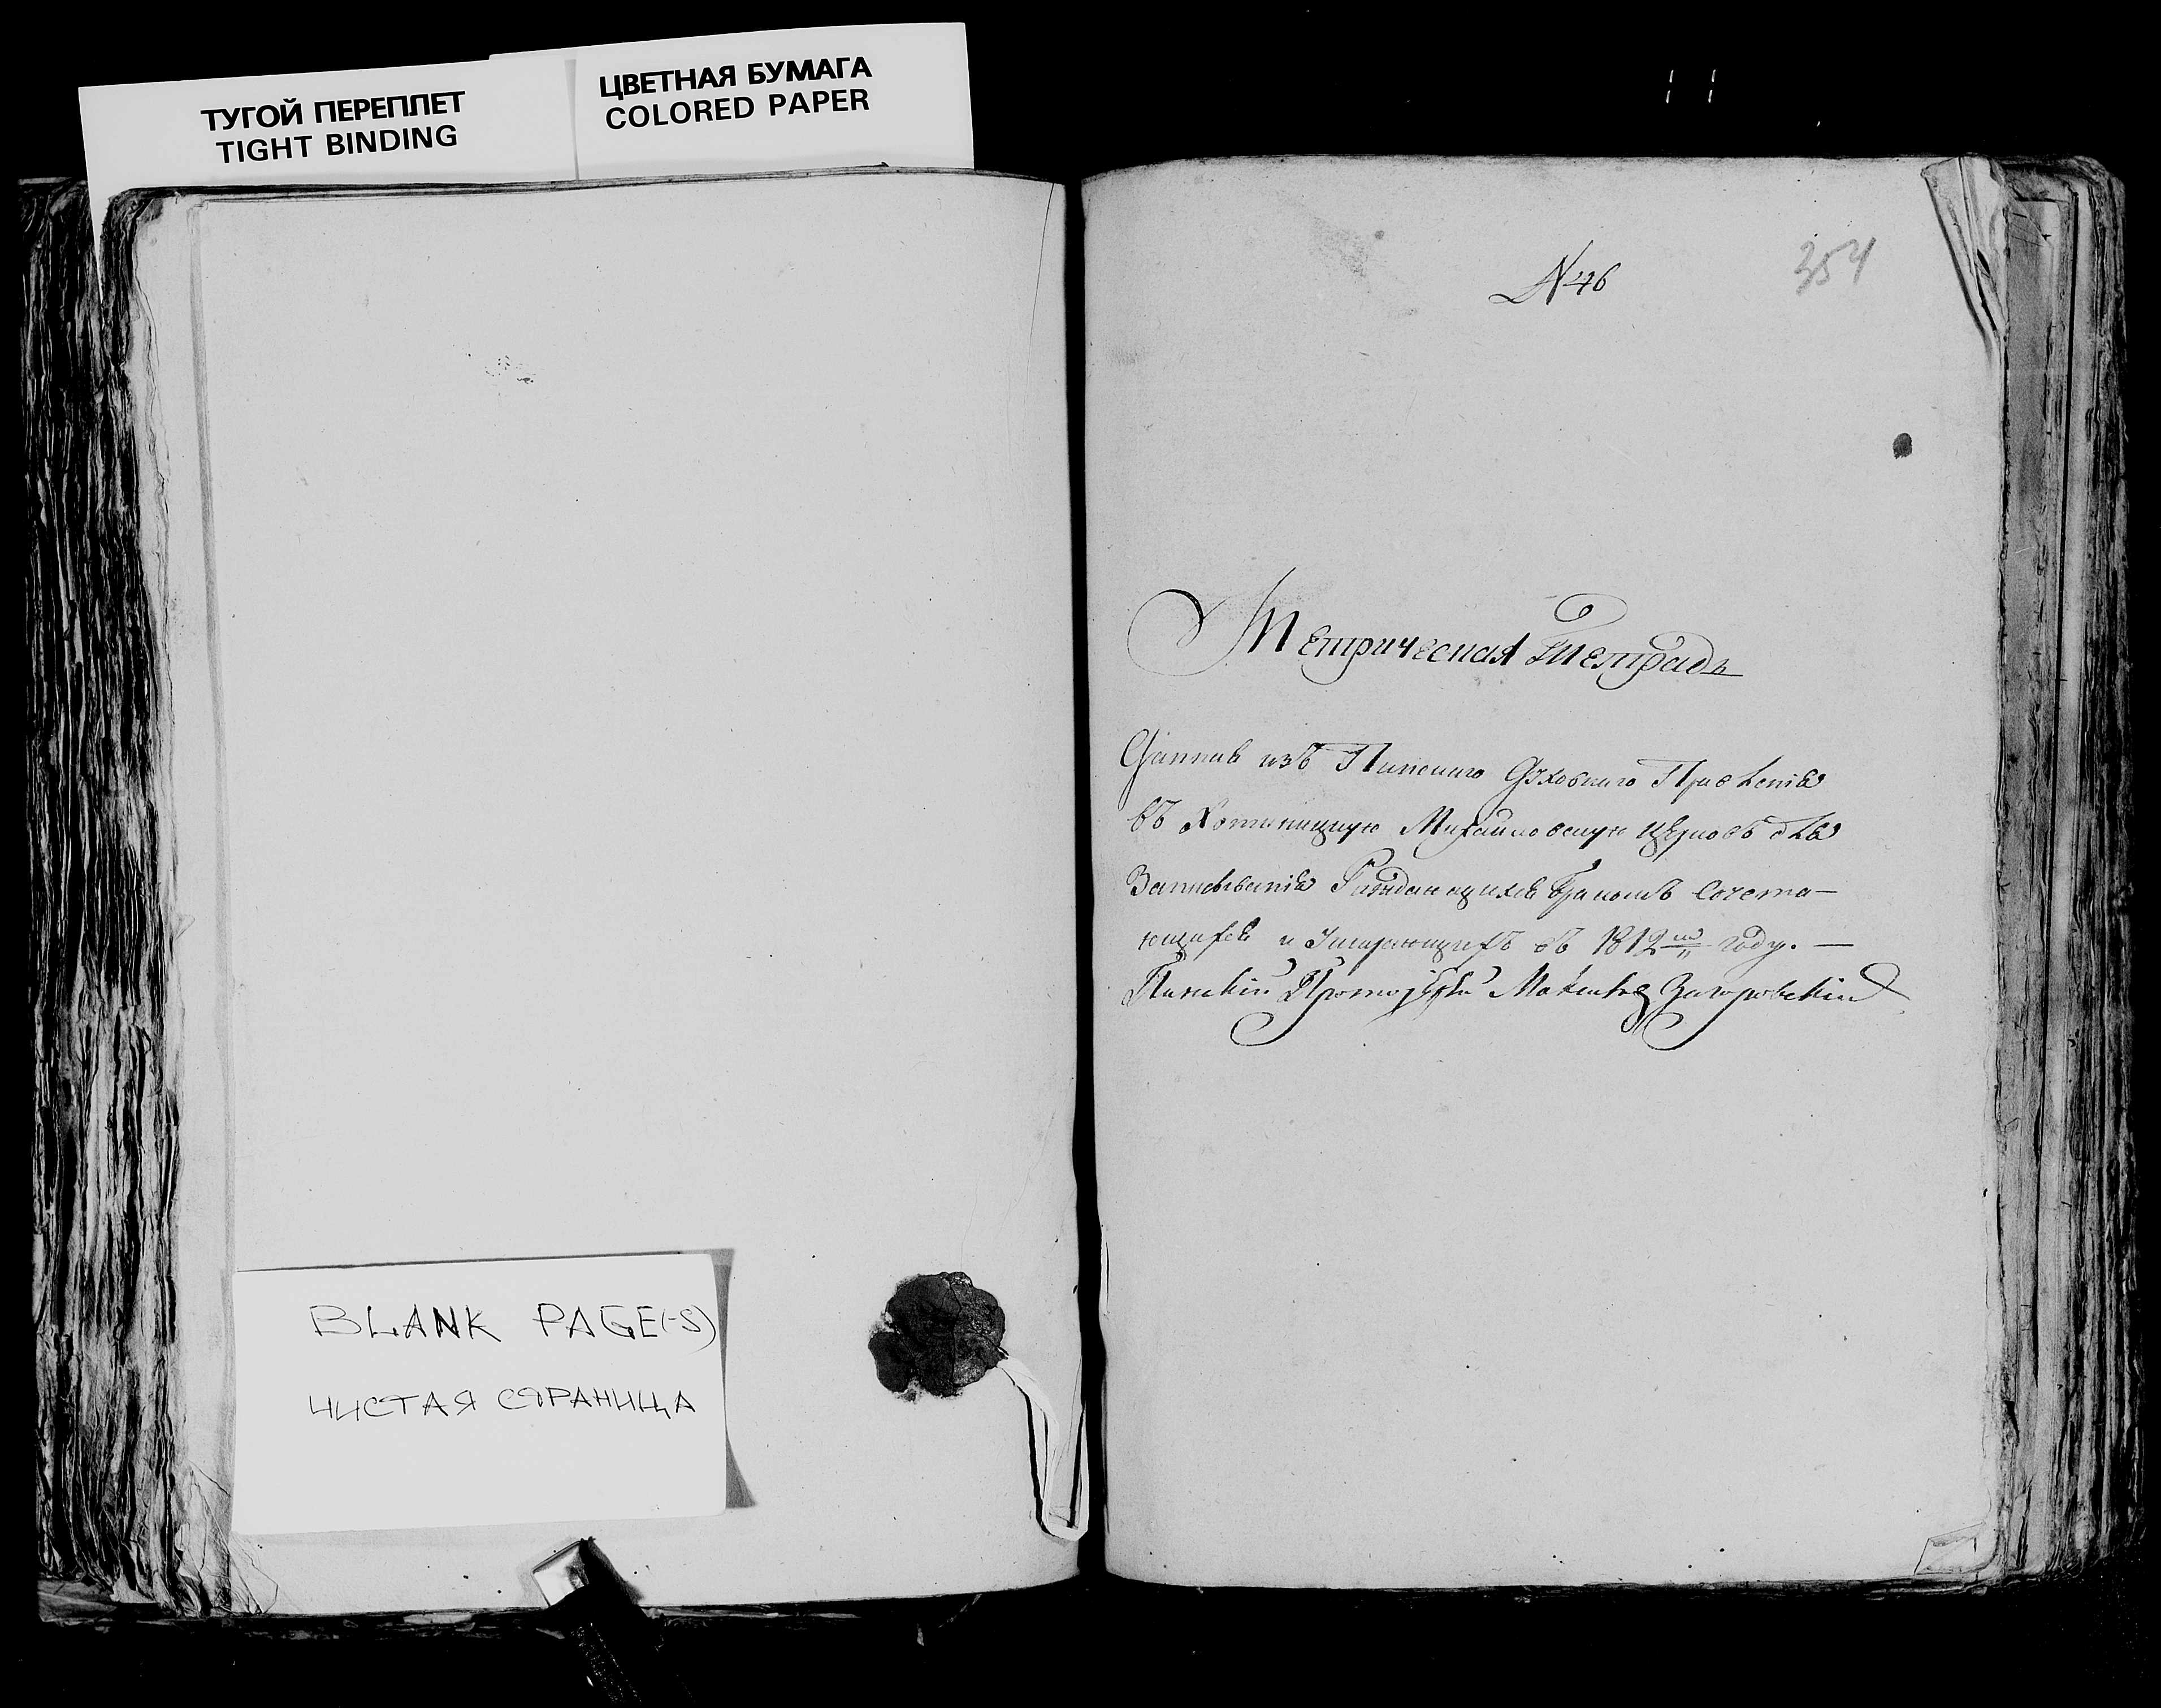 ТУГОЙ ПЕРЕПЛЕТ
TIGHT BINDING
ЦВЕТНАЯ БУМАГА
COLORED PAPER
BLANK PAGE(-S)
ЧИСТАЯ СТРАНИЦА
N 46
354
Метрическая Тетрадь
Данная изъ Пинскаго Духовнаго Правленія
въ Хотыницкую Михайловскую церковь для
Записыванія Раждающихся Бракомъ Сочета-
ющихся и Умирающихъ въ 1812мъ году. —
Пинскій Протоіерей